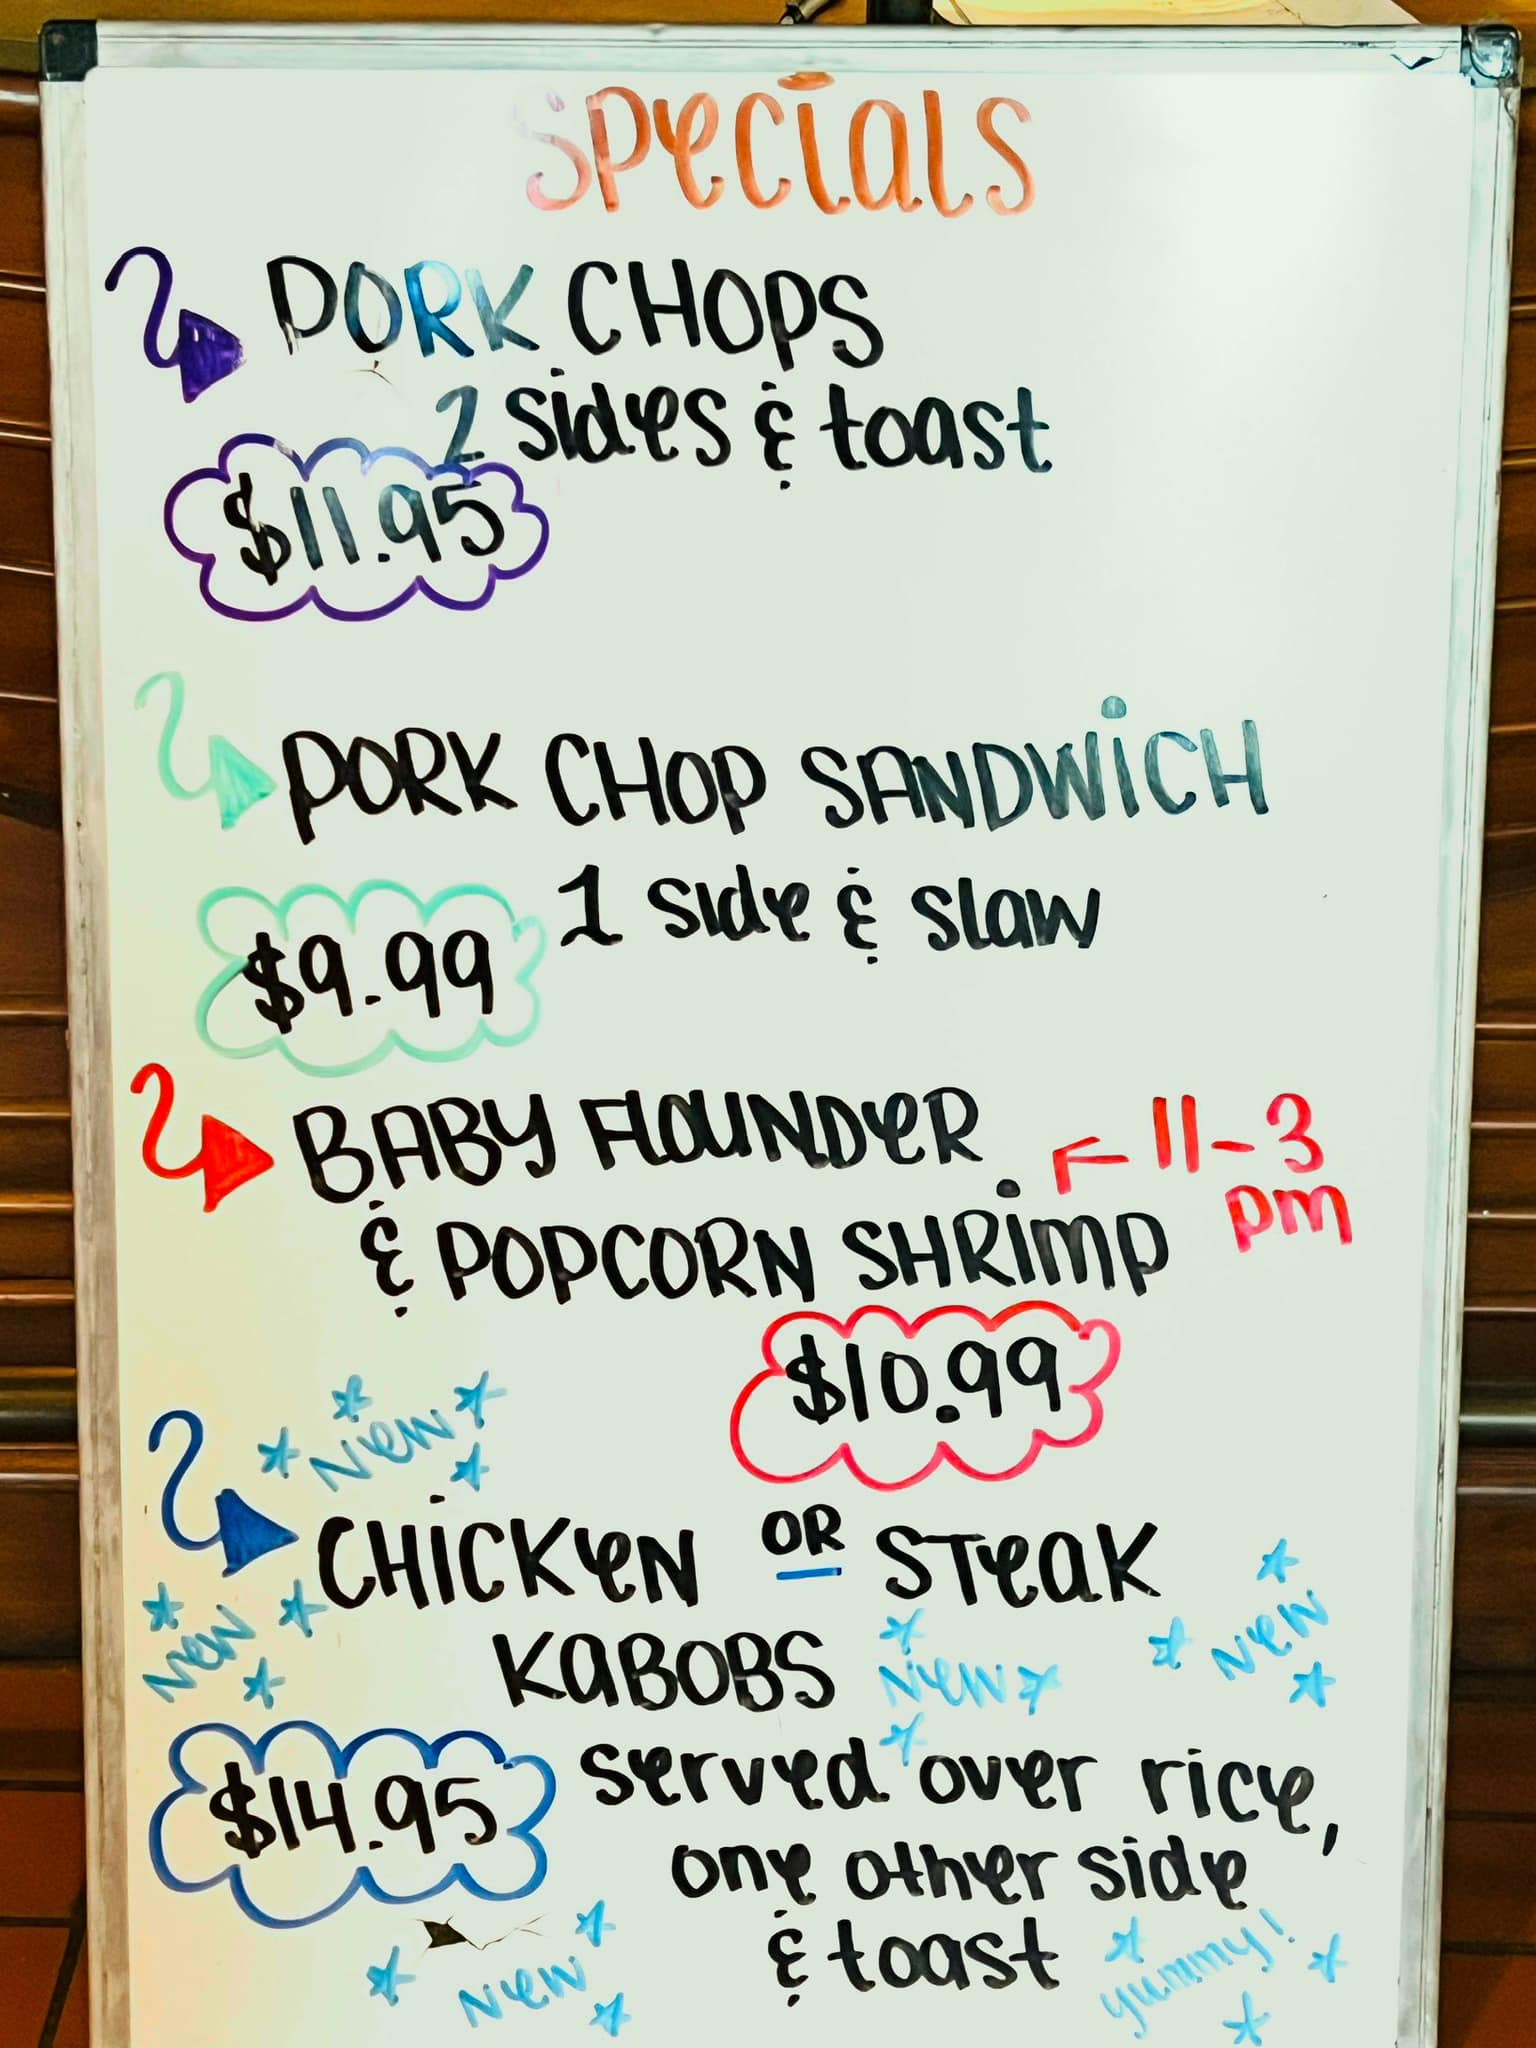 Specials
PORK CHOPS
2 sides & toast
$11.95
PORK CHOP SANDWiCH
1 side & slaw
$9.99
BABY FlOUNDeR
11-3
pm
& POPCORN SHRimp
$10.99
New
CHiCKeN OR STeaK
New
New
KaBOBS
New
$14.95
served over rice,
one other side
& toast
New
yummy!